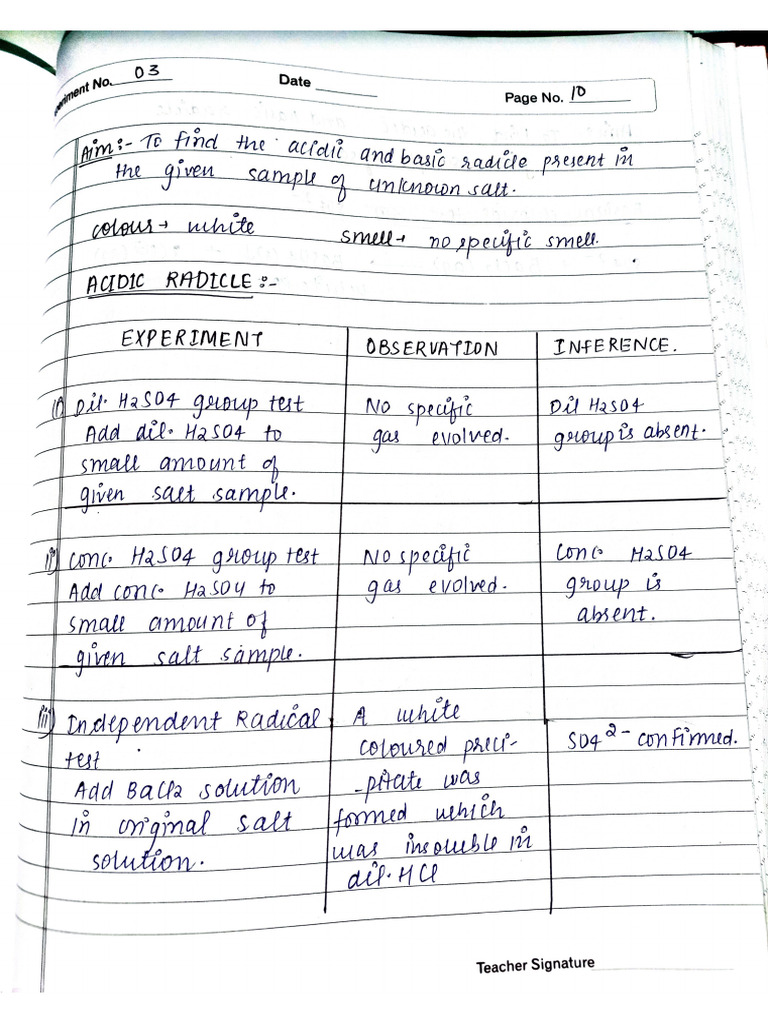 Experiment No. 03 Date Page No. 10
Aim:- To find the acidic and basic radicle present in
the given sample of unknown salt.
colour → white smell → no specific smell.
ACIDIC RADICLE:-
EXPERIMENT OBSERVATION INFERENCE.
i) Dil. H2SO4 group test No specific Dil H2SO4
Add dil. H2SO4 to gas evolved. group is absent.
small amount of
given salt sample.
ii) Conc. H2SO4 group test No specific Conc H2SO4
Add conc. H2SO4 to gas evolved. group is
small amount of absent.
given salt sample.
iii) Independent Radical A white
test coloured preci- SO4 2- confirmed.
Add BaCl2 solution -pitate was
in original salt formed which
solution. was insoluble in
dil. HCl
Teacher Signature